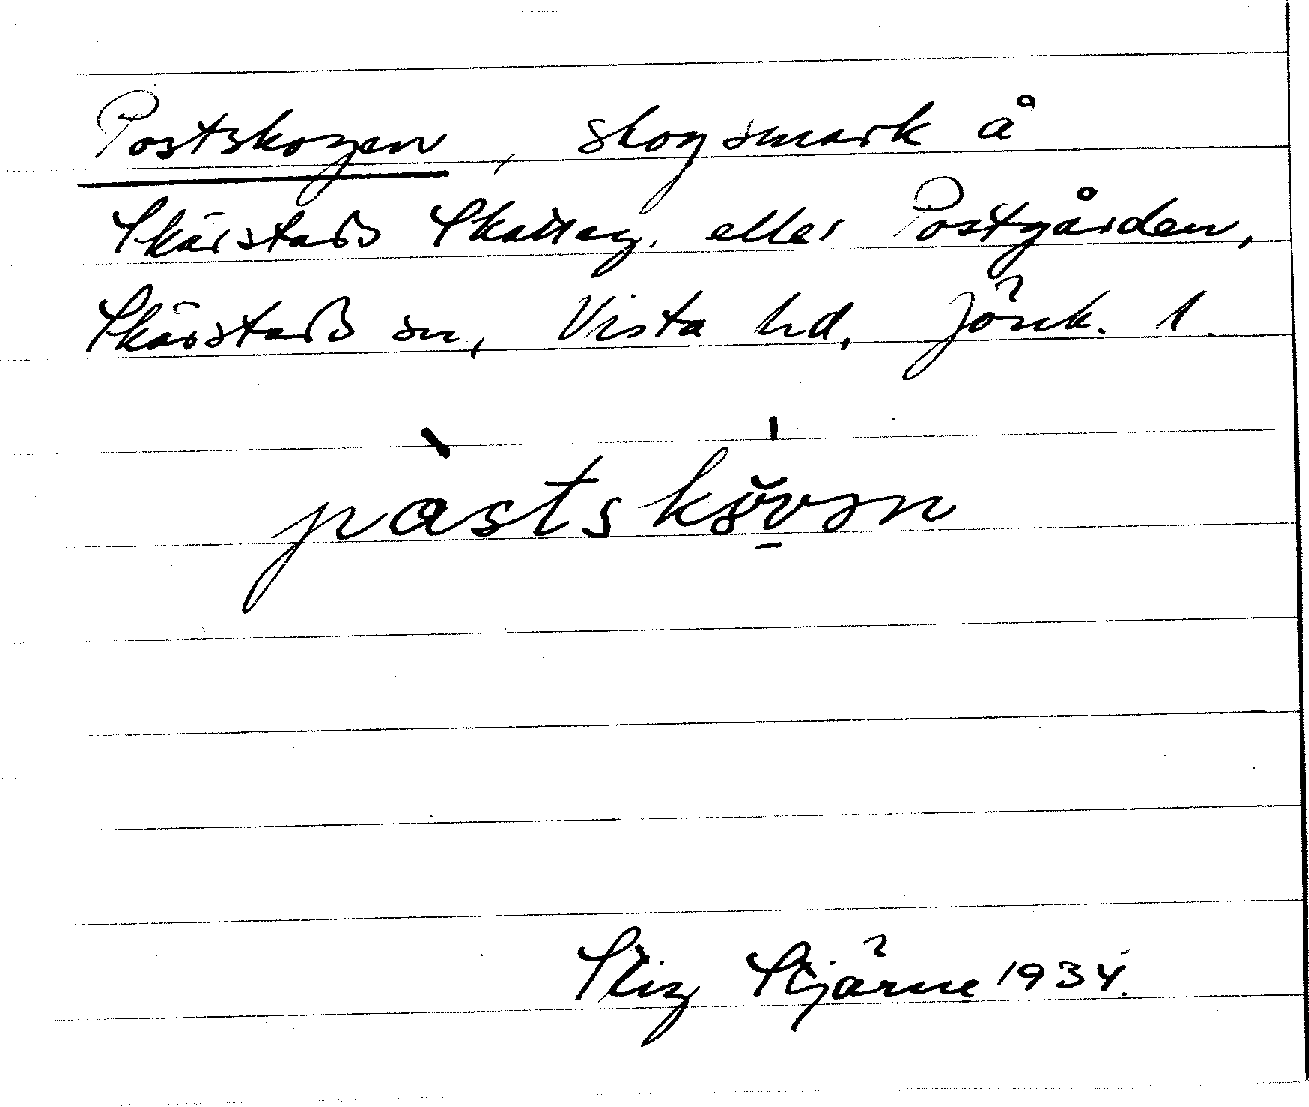 Postskogen, skogsmark å
Skärstads Skatteg. eller Postgården,
Skärstads sn, Vista hd, Jönk. l.
Stig Stjärne 1934.